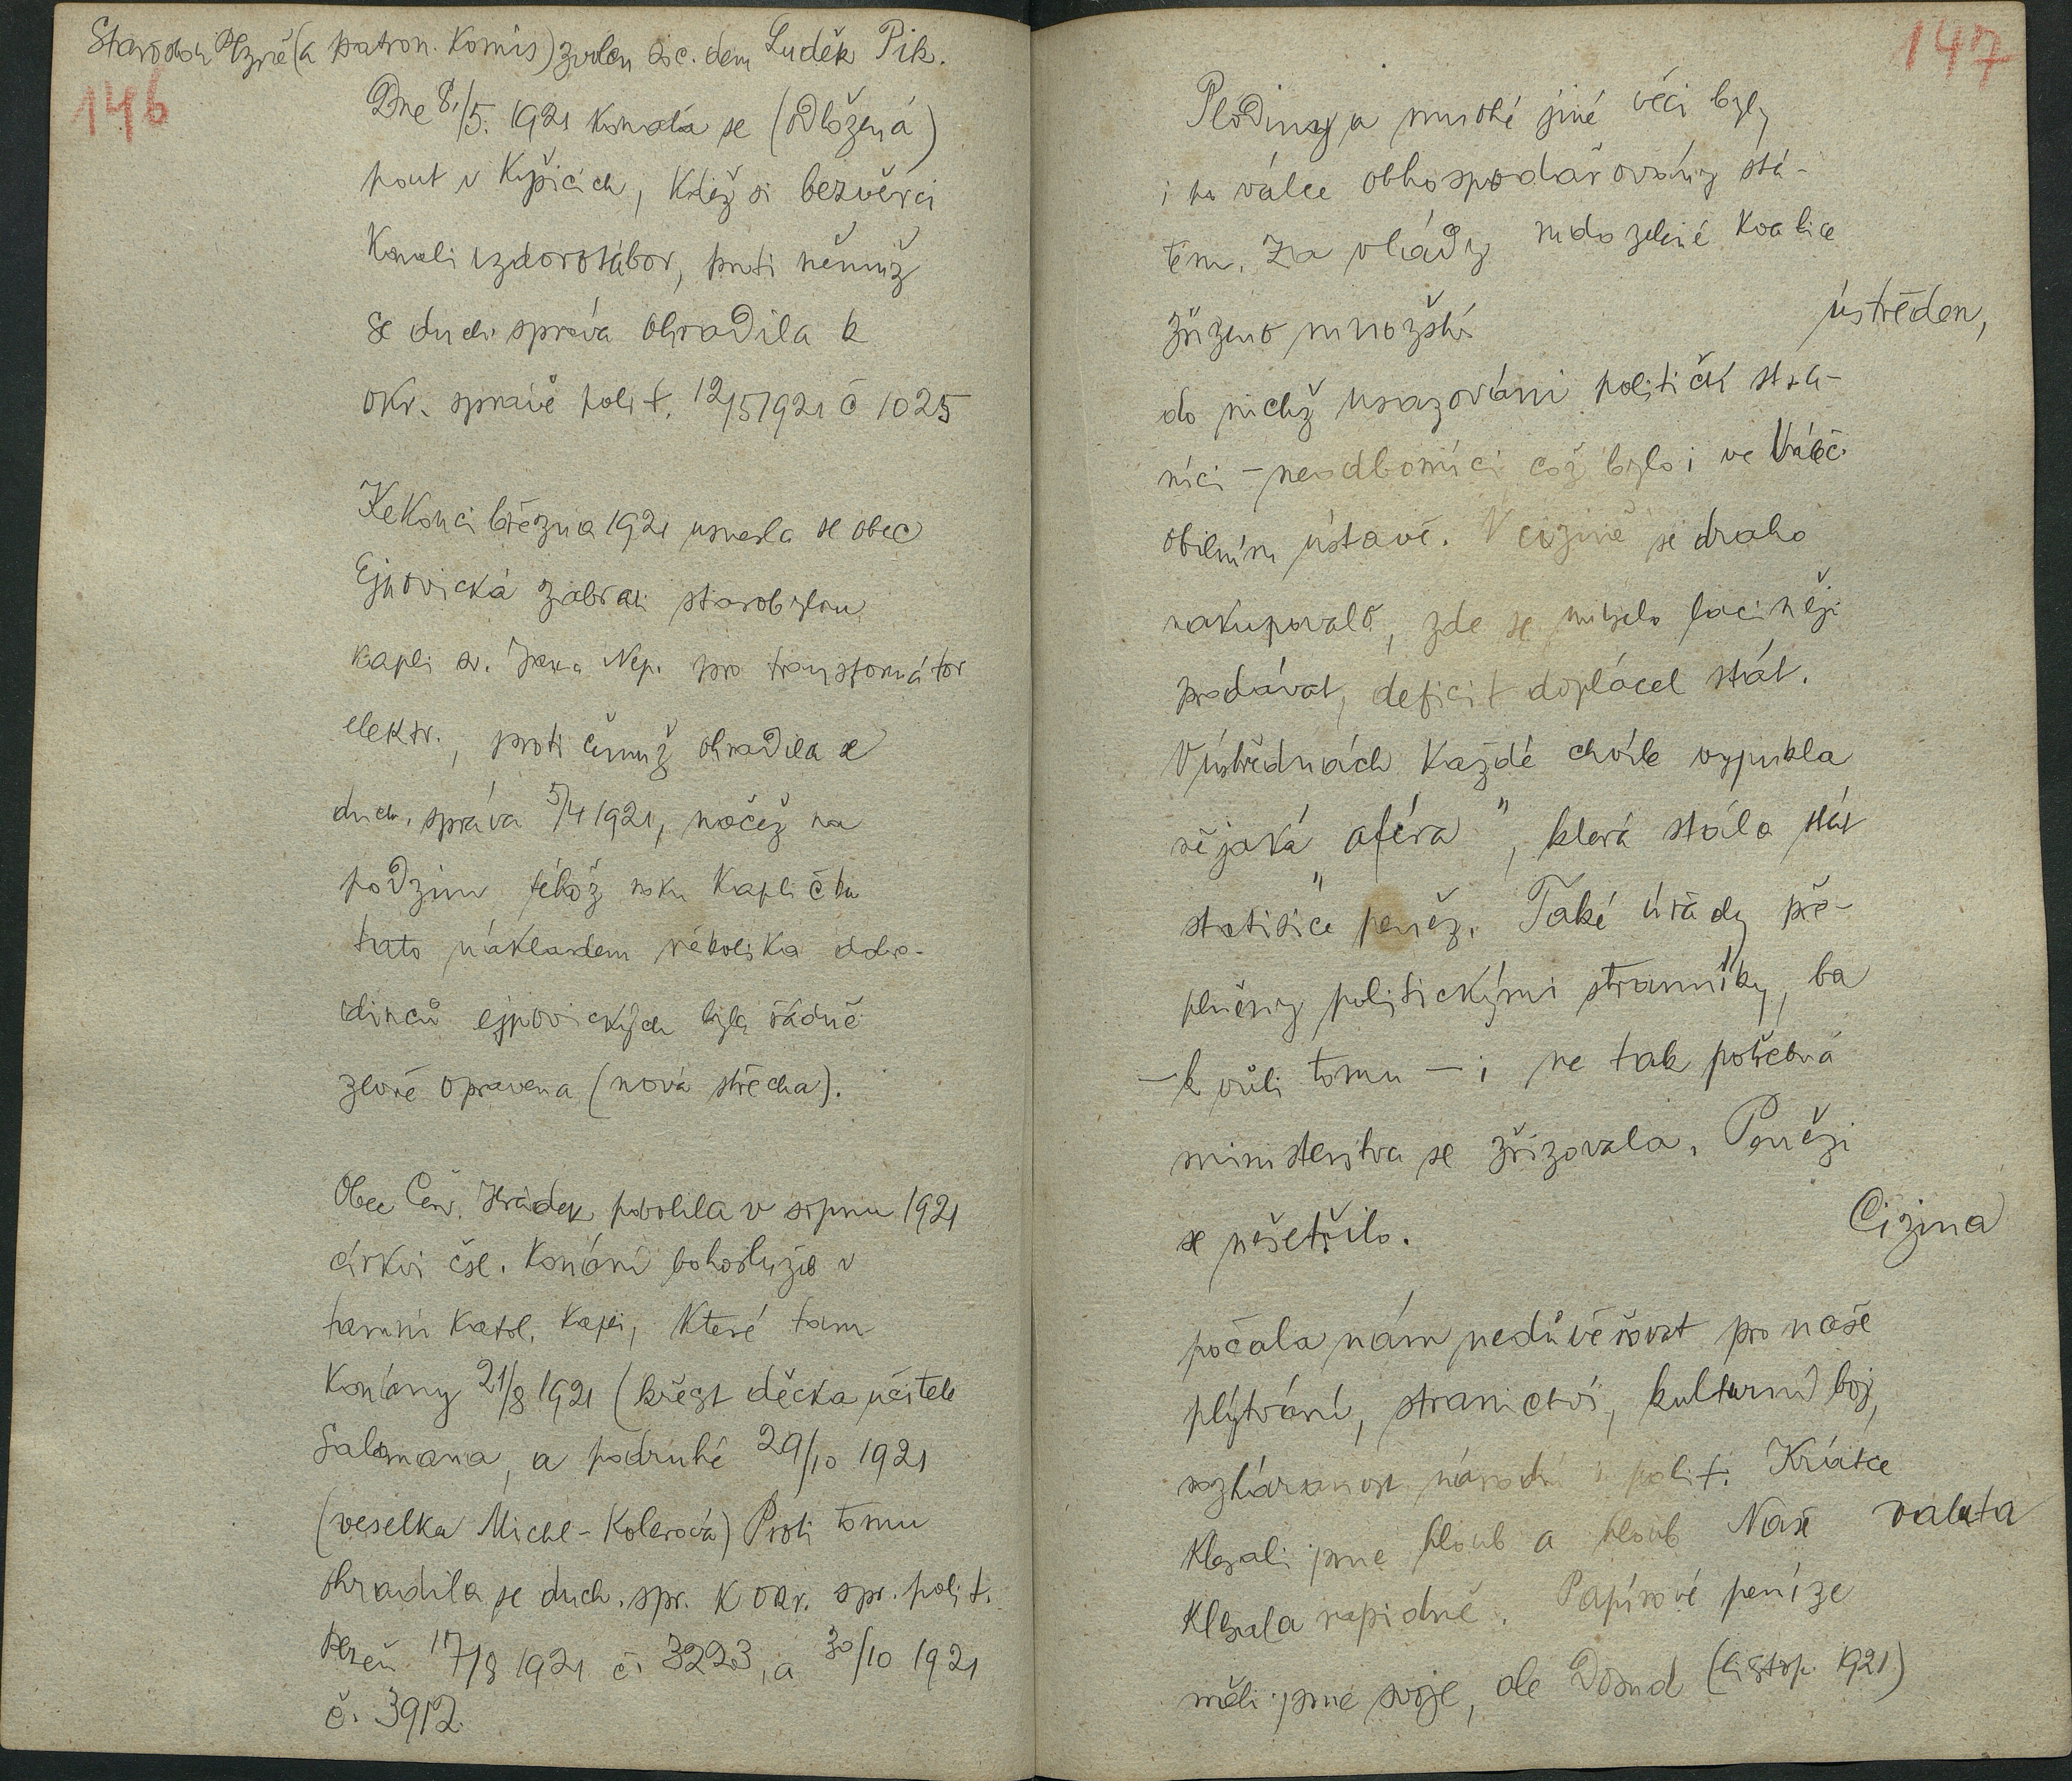 Starostou Plzně (a patron. komis) zvolen soc. dem Luděk Pik.
146
Dne 8./5. 1921 konala se (odložená)
pouť v Kyšicích, kdež si bezvěrci
konali vzdorotábor, proti němuž
se duch. správa ohradila k
okr. správě polit. 12/5 1921 č 1025
Ke konci března 1921 usnesla se obec
Ejpovická zabrati starobylou
kapli sv. Jana Nep. pro transformátor
elektr., proti čemuž ohradila se
duch. správa 5/4 1921, načež na
podzim téhož roku kaplička
tato nákladem několika dobro-
dinců ejpovických byla řádně
zevně opravena (nová střecha).
Obec Červ. Hrádek povolila v srpnu 1921
církvi čsl. konání bohoslužeb v
tamní katol. kapli, které tam
konány 21/8 1921 (křest děcka učitele
Salamana, a podruhé 29/10 1921
(veselka Michl-Kolerová) Proti tomu
ohradila se duch. spr. k okr. spr. polit.
Plzeň 17/8 1921 č. 3223, a 30/10 1921
č. 3912.
147
Plodiny a mnohé jiné věci byly
i po válce obhospodařovány stá-
tem. Za vlády rudozelené koalice
zřízeno množství ústředen,
do nichž usazováni političtí stra-
níci - neodborníci což bylo i ve Váleč.
obilním ústavě. V cizině se draho
nakupovalo, zde se muselo laciněji
prodávat, deficit doplácel stát.
V ústřednách každé chvíle vypukla
nějaká "aféra", která stála stát
statisíce peněz. Také úřady pře-
plněny politickými straníky, ba
- k vůli tomu - i ne tak potřebná
ministerstva se zřizovala. Penězi
se nešetřilo. Cizina
počala nám nedůvěřovat pro naše
plýtvání, stranictví, kulturní boj,
rozháranost národní i polit. Krátce
klesali jsme hloub a hloub Naše valuta
klesala rapidně. Papírové peníze
měli jsme svoje, ale dosud (listop. 1921)